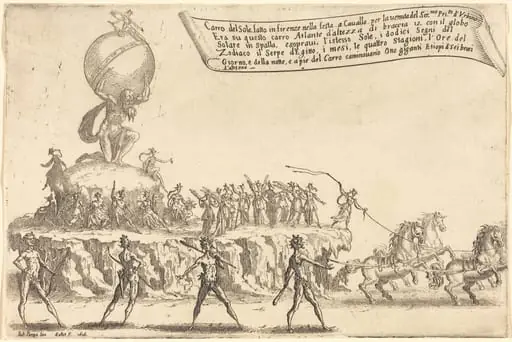 Carro del Sole, fatto in firenze nella festa a Cauallo, per la uenuta del Ser.mo Pri.pe d'Vrbino
Era su questo carro Atlante d'altezza di braccia 12. con il globo
Solare in spalla, e sopraui l'istesso Sole, i dodici Segni del
Zodiaco il Serpe Egizio, i mesi, le quattro Stagioni, l'Ore del
Giorno, e della notte, e a pie del Carro caminauano Otto giganti Etiopi di Sei bracci
d'altezza
Iul. Parigii Inu. Callot F.